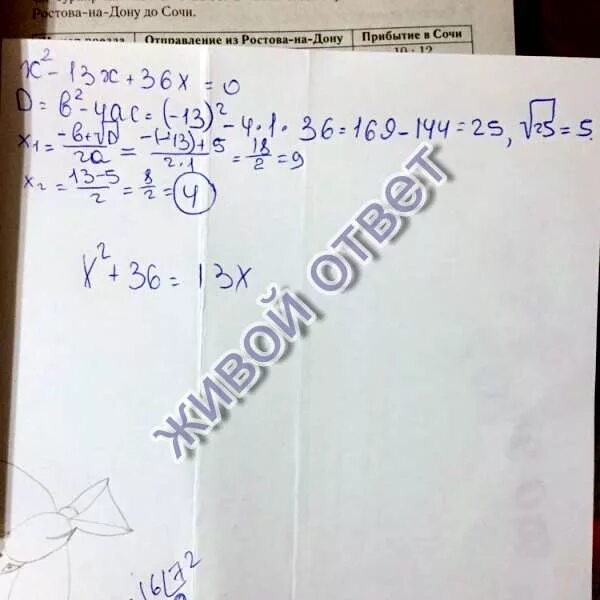 Ростова-на-Дону до Сочи.
Отправление из Ростова-на-Дону Прибытие в Сочи
10 : 12
x² - 13x + 36x = 0
D = b² - 4ac = (-13)² - 4·1·36 = 169 - 144 = 25, √25 = 5.
x₁ = -b+√D / 2a = -(-13)+5 / 2·1 = 18/2 = 9
x₂ = 13-5 / 2 = 8/2 = 4
x² + 36 = 13x
ЖИВОЙ ОТВЕТ